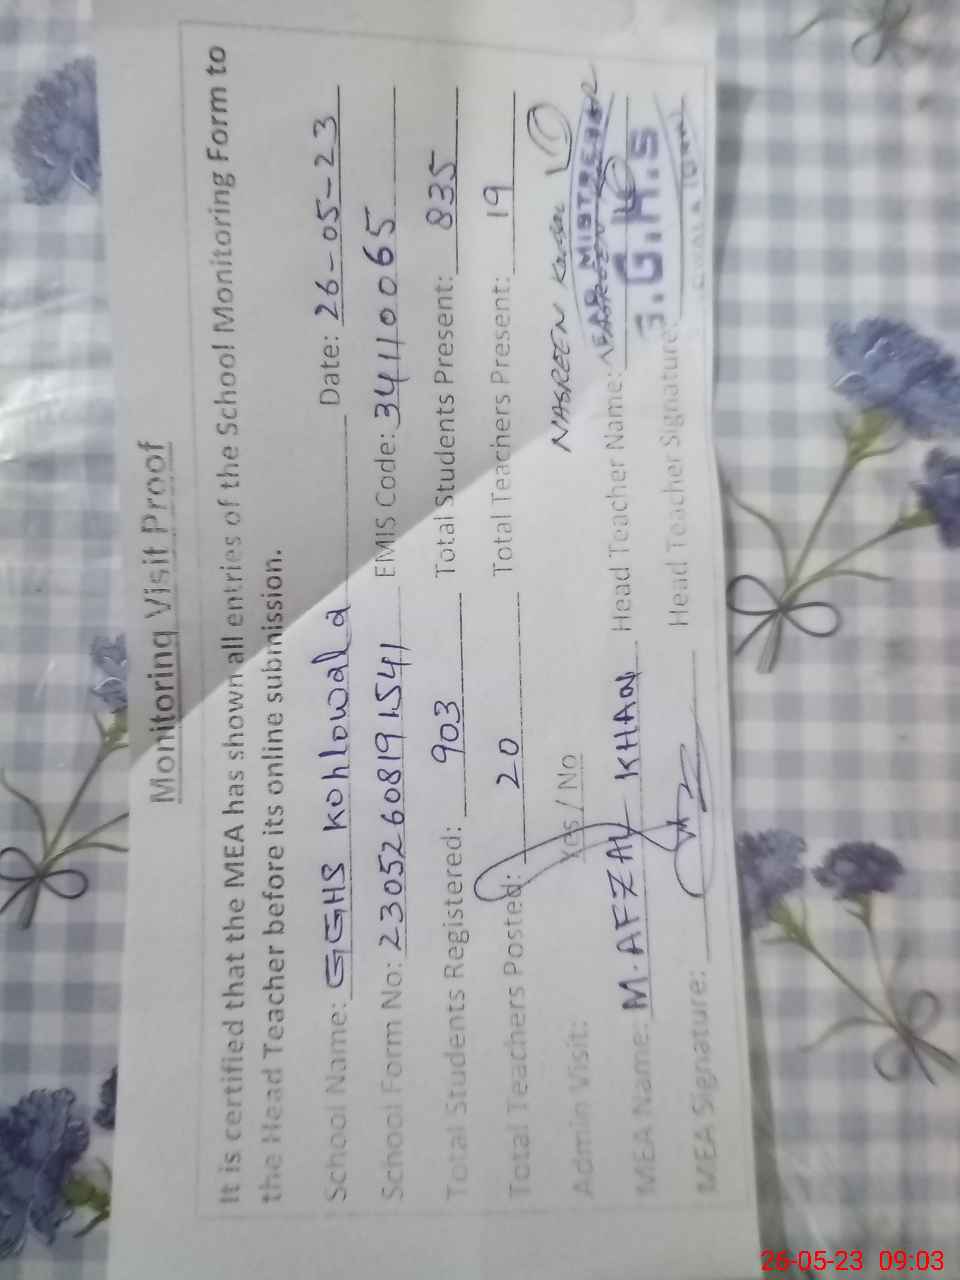 Monitoring Visit Proof
It is certified that the MEA has shown all entries of the School Monitoring Form to
the Head Teacher before its online submission.
School Name: GGHS Kohlowala Date: 26-05-23
School Form No: 23052608191541 EMIS Code: 34110065
Total Students Registered: 903 Total Students Present: 835
Total Teachers Posted: 20 Total Teachers Present: 19
Admin Visit: Yes / No NASREEN
MEA Name: M. AFZAL KHAN Head Teacher Name:
HEAD MISTRESS
MEA Signature: Head Teacher Signature:
G.G.H.S
26-05-23 09:03